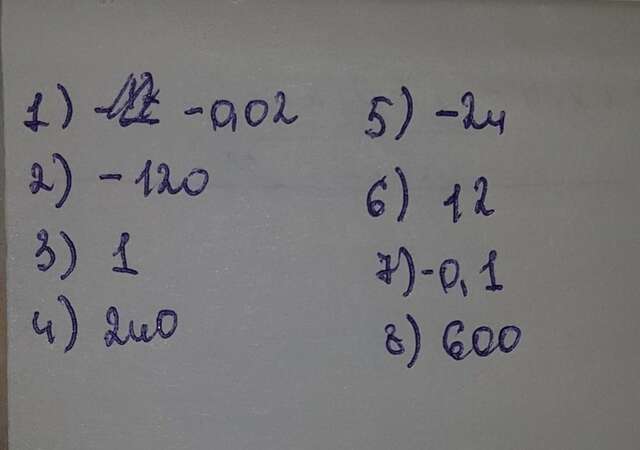 1) -0,02
2) -120
3) 1
4) 240
5) -24
6) 12
7) -0,1
8) 600